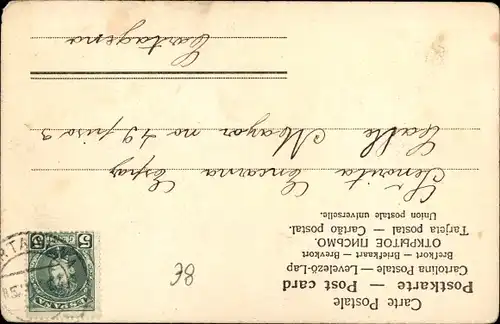 Carte Postale
Postkarte — Post card
Cartolina Postale — Levelező-Lap
Brefkort — Briefkaart — Brevkort
ОТКРЫТОЕ ПИСЬМО.
Tarjeta postal — Cartão postal.
Union postale universelle.
Señorita Encarna Espar
Calle Mayor no 49 piso 3
Cartagena
ESPAÑA
5 5
38